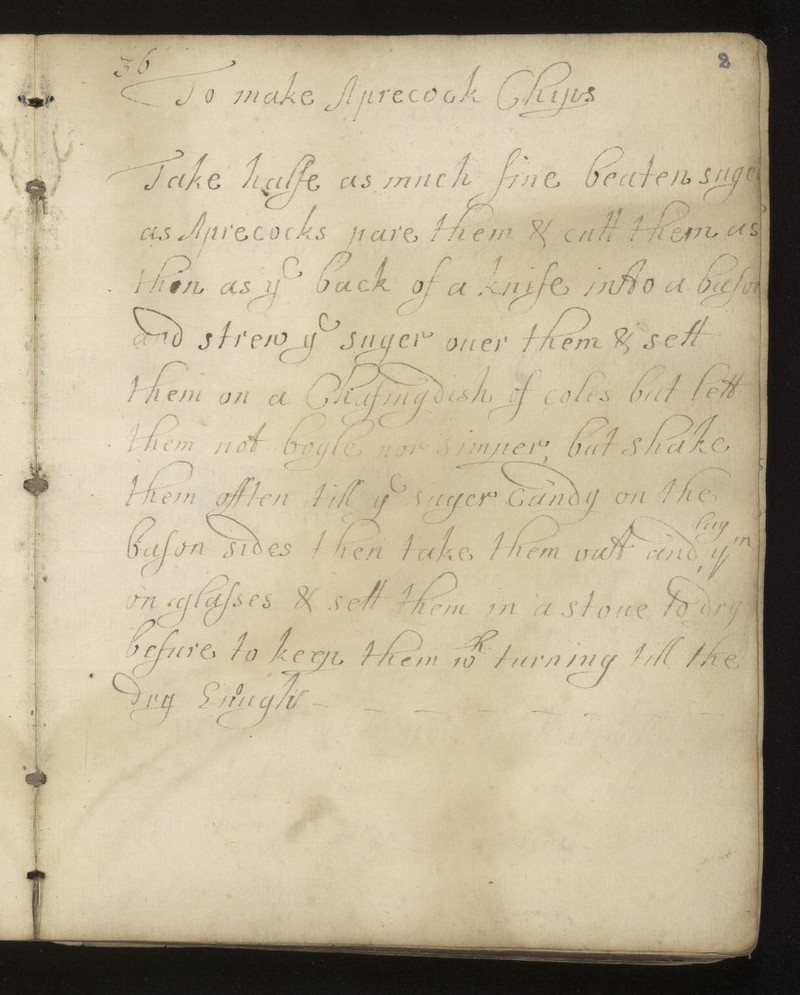 36
8
To make Aprecock Chips
Take halfe as much fine beaten suge
as Aprecocks pare them & cutt them as
thin as yᵉ back of a knife into a bason
and strew yᵉ suger ouer them & sett
them on a Chafingdish of coles but lett
them not boyle nor simper, but shake
them offten till yᵉ suger Candy on the
bason sides then take them outt and lay yᵐ
on glasses & sett them in a stoue to dry
besure to keep them wᵗʰ turning till the
dry Enough